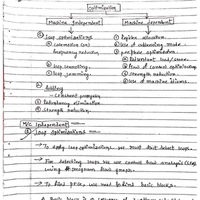 Optimization
Machine Independent
Machine Dependent
① Loop optimizations
① Register allocation
② Use of addressing mode
frequency reduction
③ peephole optimization
② Loop unrolling
③ Loop jamming
Flow of control optimization
Strength reduction
② Folding
Use of machine idioms
→ Constant propagation
③ Redundancy elimination
④ Strength reduction
M/C Independent
① Loop optimizations
→ To apply loop optimizations we must first detect loops.
→ For detecting loops we use control flow analysis (CFA)
using program flow graph.
→ To find we need to find basic blocks.